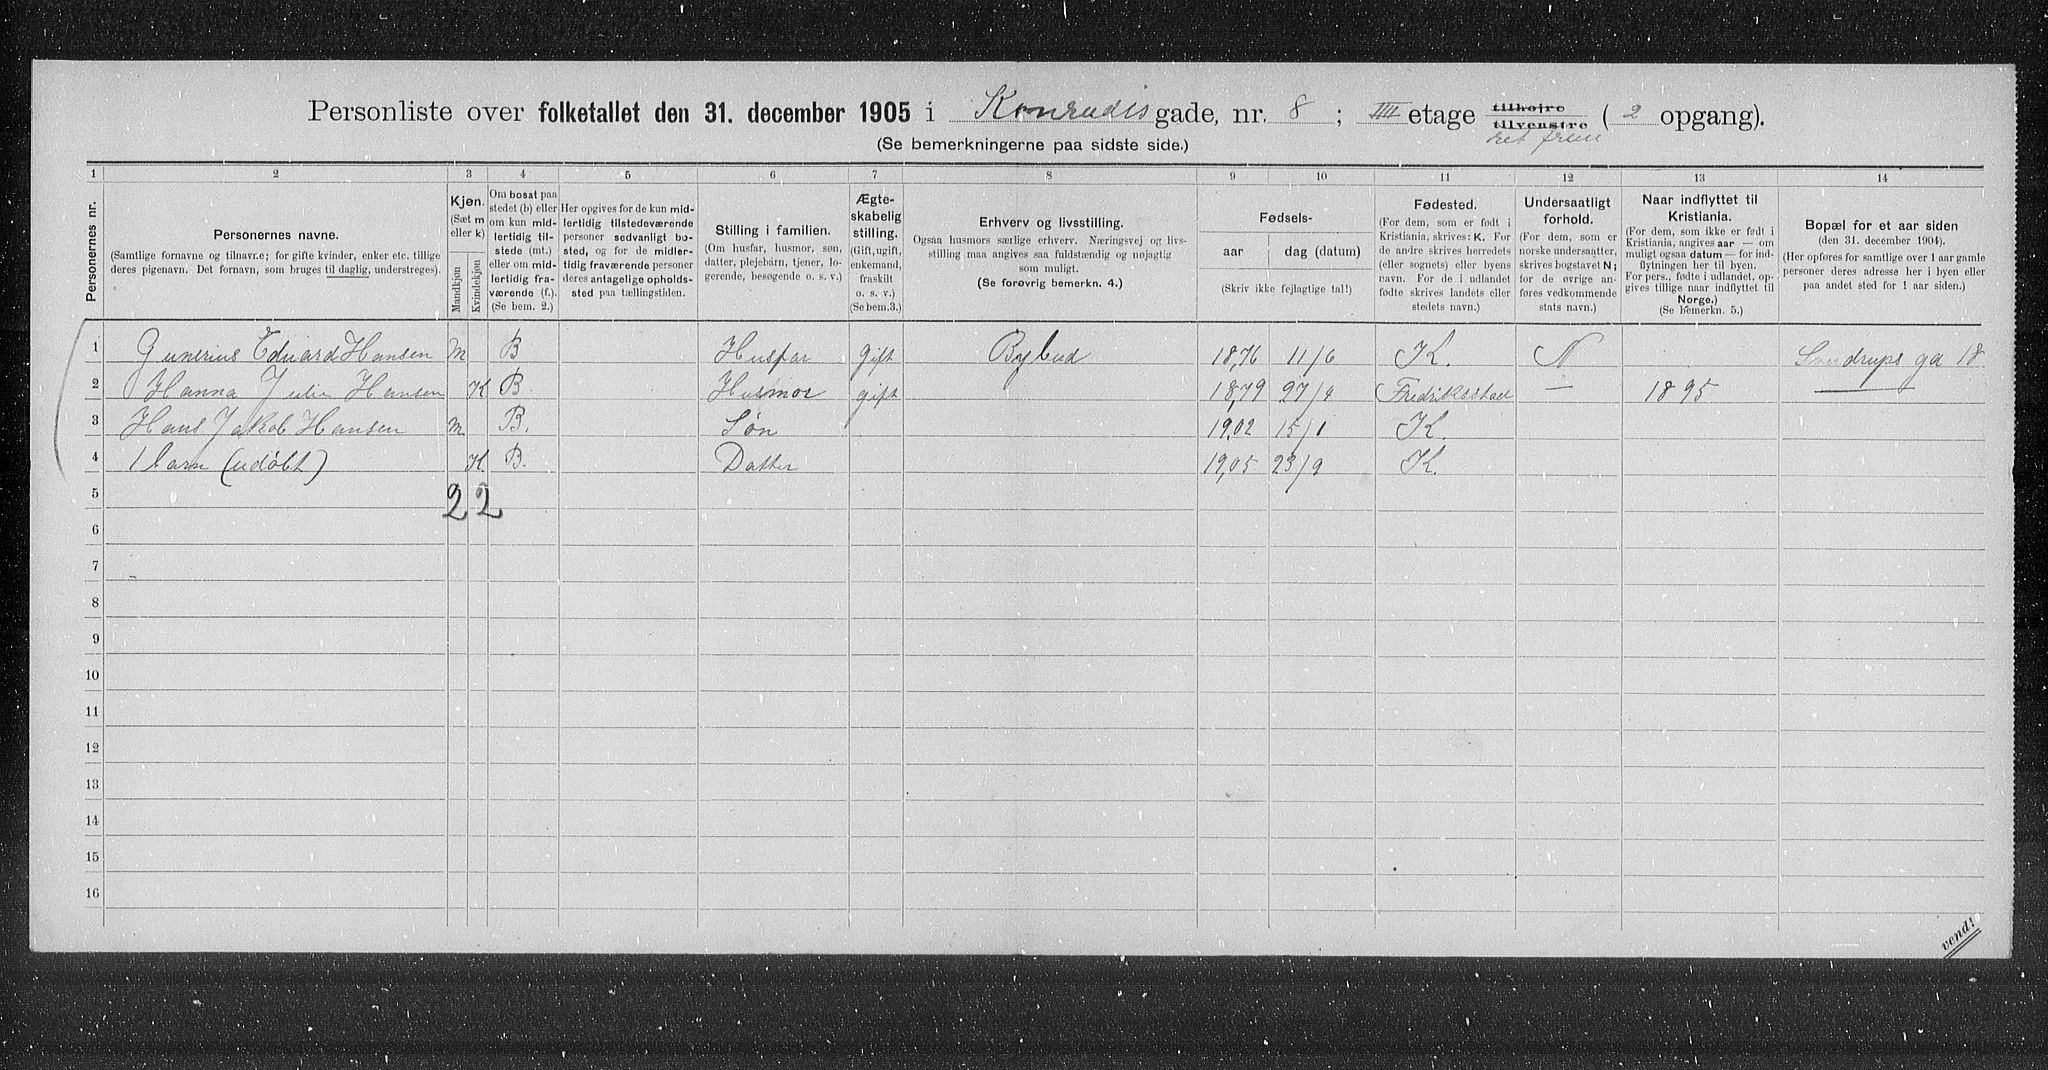 Personliste over folketallet den 31. december 1905 i Konradis gade, nr. 8 ; III etage tilhøjre tilvenstre ret frem ( 2 opgang).
(Se bemerkningerne paa sidste side.)
1 2 3 4 5 6 7 8 9 10 11 12 13 14
Personernes nr.
Personernes navne.
(Samtlige fornavne og tilnavne; for gifte kvinder, enker etc. tillige
deres pigenavn. Det fornavn, som bruges til daglig, understreges).
Kjøn.
(Sæt m
eller k)
Mandkjøn
Kvindekjøn
Om bosat paa
stedet (b) eller
om kun mid-
lertidig til-
stede (mt.)
eller om mid-
lertidig fra-
værende (f.).
(Se bem. 2.)
Her opgives for de kun mid-
lertidig tilstedeværende
personer sedvanligt bo-
sted, og for de midler-
tidig fraværende personer
deres antagelige opholds-
sted paa tællingstiden.
Stilling i familien.
(Om husfar, husmor, søn,
datter, plejebarn, tjener, lo-
gerende, besøgende o. s. v.)
Ægte-
skabelig
stilling.
(Gift, ugift,
enkemand,
fraskilt
o. s. v.)
(Se bem.3.)
Erhverv og livsstilling.
Ogsaa husmors særlige erhverv. Næringsvej og livs-
stilling maa angives saa fuldstændig og nøjagtig
som muligt.
(Se forøvrig bemerkn. 4.)
Fødsels-
aar dag (datum)
(Skriv ikke fejlagtige tal!)
Fødested.
(For dem, som er født i
Kristiania, skrives: K. For
de andre skrives herredets
(eller sognets) eller byens
navn. For de i udlandet
fødte skrives landets eller
stedets navn.)
Undersaatligt
forhold.
(For dem, som er
norske undersaatter,
skrives bogstavet N;
for de øvrige an-
føres vedkommende
stats navn.)
Naar indflyttet til
Kristiania.
(For dem, som ikke er født i
Kristiania, angives aar — om
muligt ogsaa datum — for ind-
flytningen her til byen.
For pers., fødte i udlandet, op-
gives tillige naar indflyttet til
Norge.)
(Se bemerkn. 5.)
Bopæl for et aar siden
(den 31. december 1904).
(Her opføres for samtlige over 1 aar gamle
personer deres adresse her i byen eller
paa andet sted for 1 aar siden.)
1 Gunerius Eduard Hansen m B Husfar gift Bybud 1876 11/6 K. N Sverdrups ga 18
2 Hanna Julie Hansen K B. Husmor gift 1879 27/4 Fredriksstad — 1895 —
3 Hans Jakob Hansen m B. Søn 1902 15/1 K.
4 1 barn (udøbt) K B. Datter 1905 23/9 K.
5 2 2
6
7
8
9
10
11
12
13
14
15
16
vend!